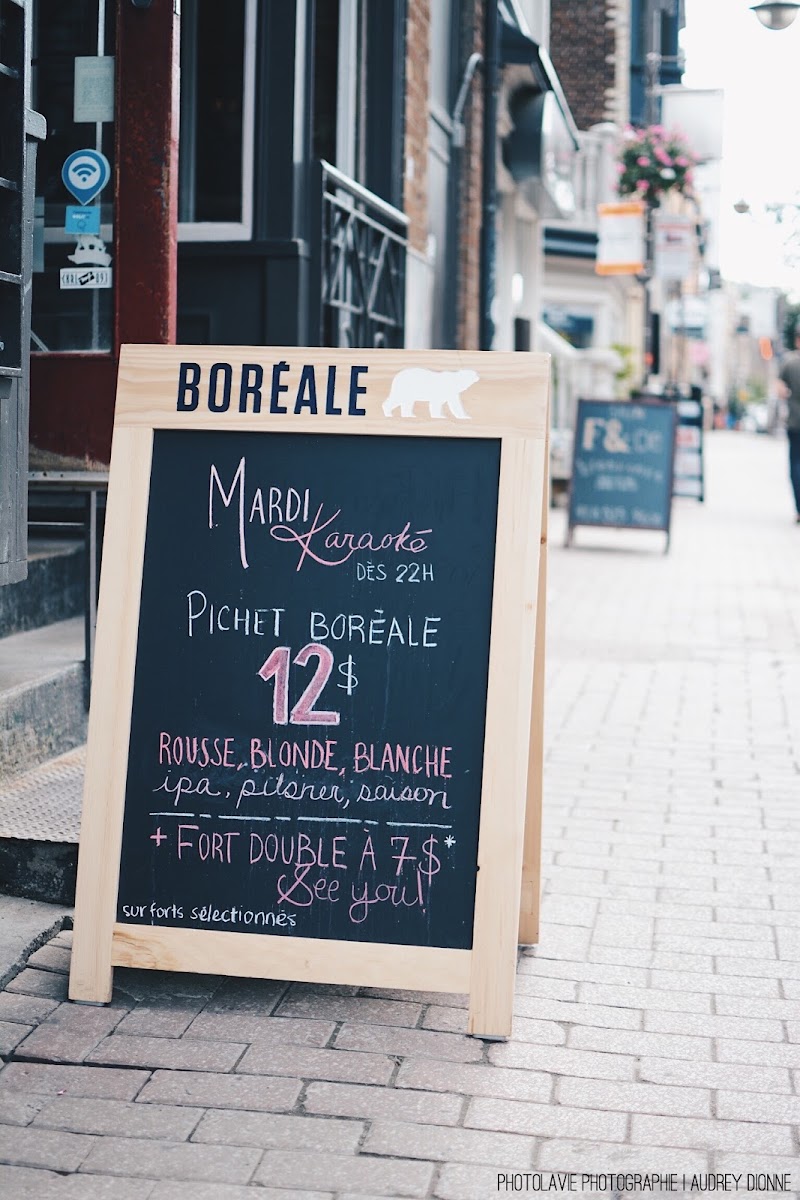 BORÉALE
MARDI
Karaoké
DÈS 22H
PICHET BORÉALE
12$
ROUSSE, BLONDE, BLANCHE
ipa, pilsner, saison
+ FORT DOUBLE À 7$*
See you!
sur forts sélectionnés
F&
PHOTOLAVIE PHOTOGRAPHE | AUDREY DIONNE